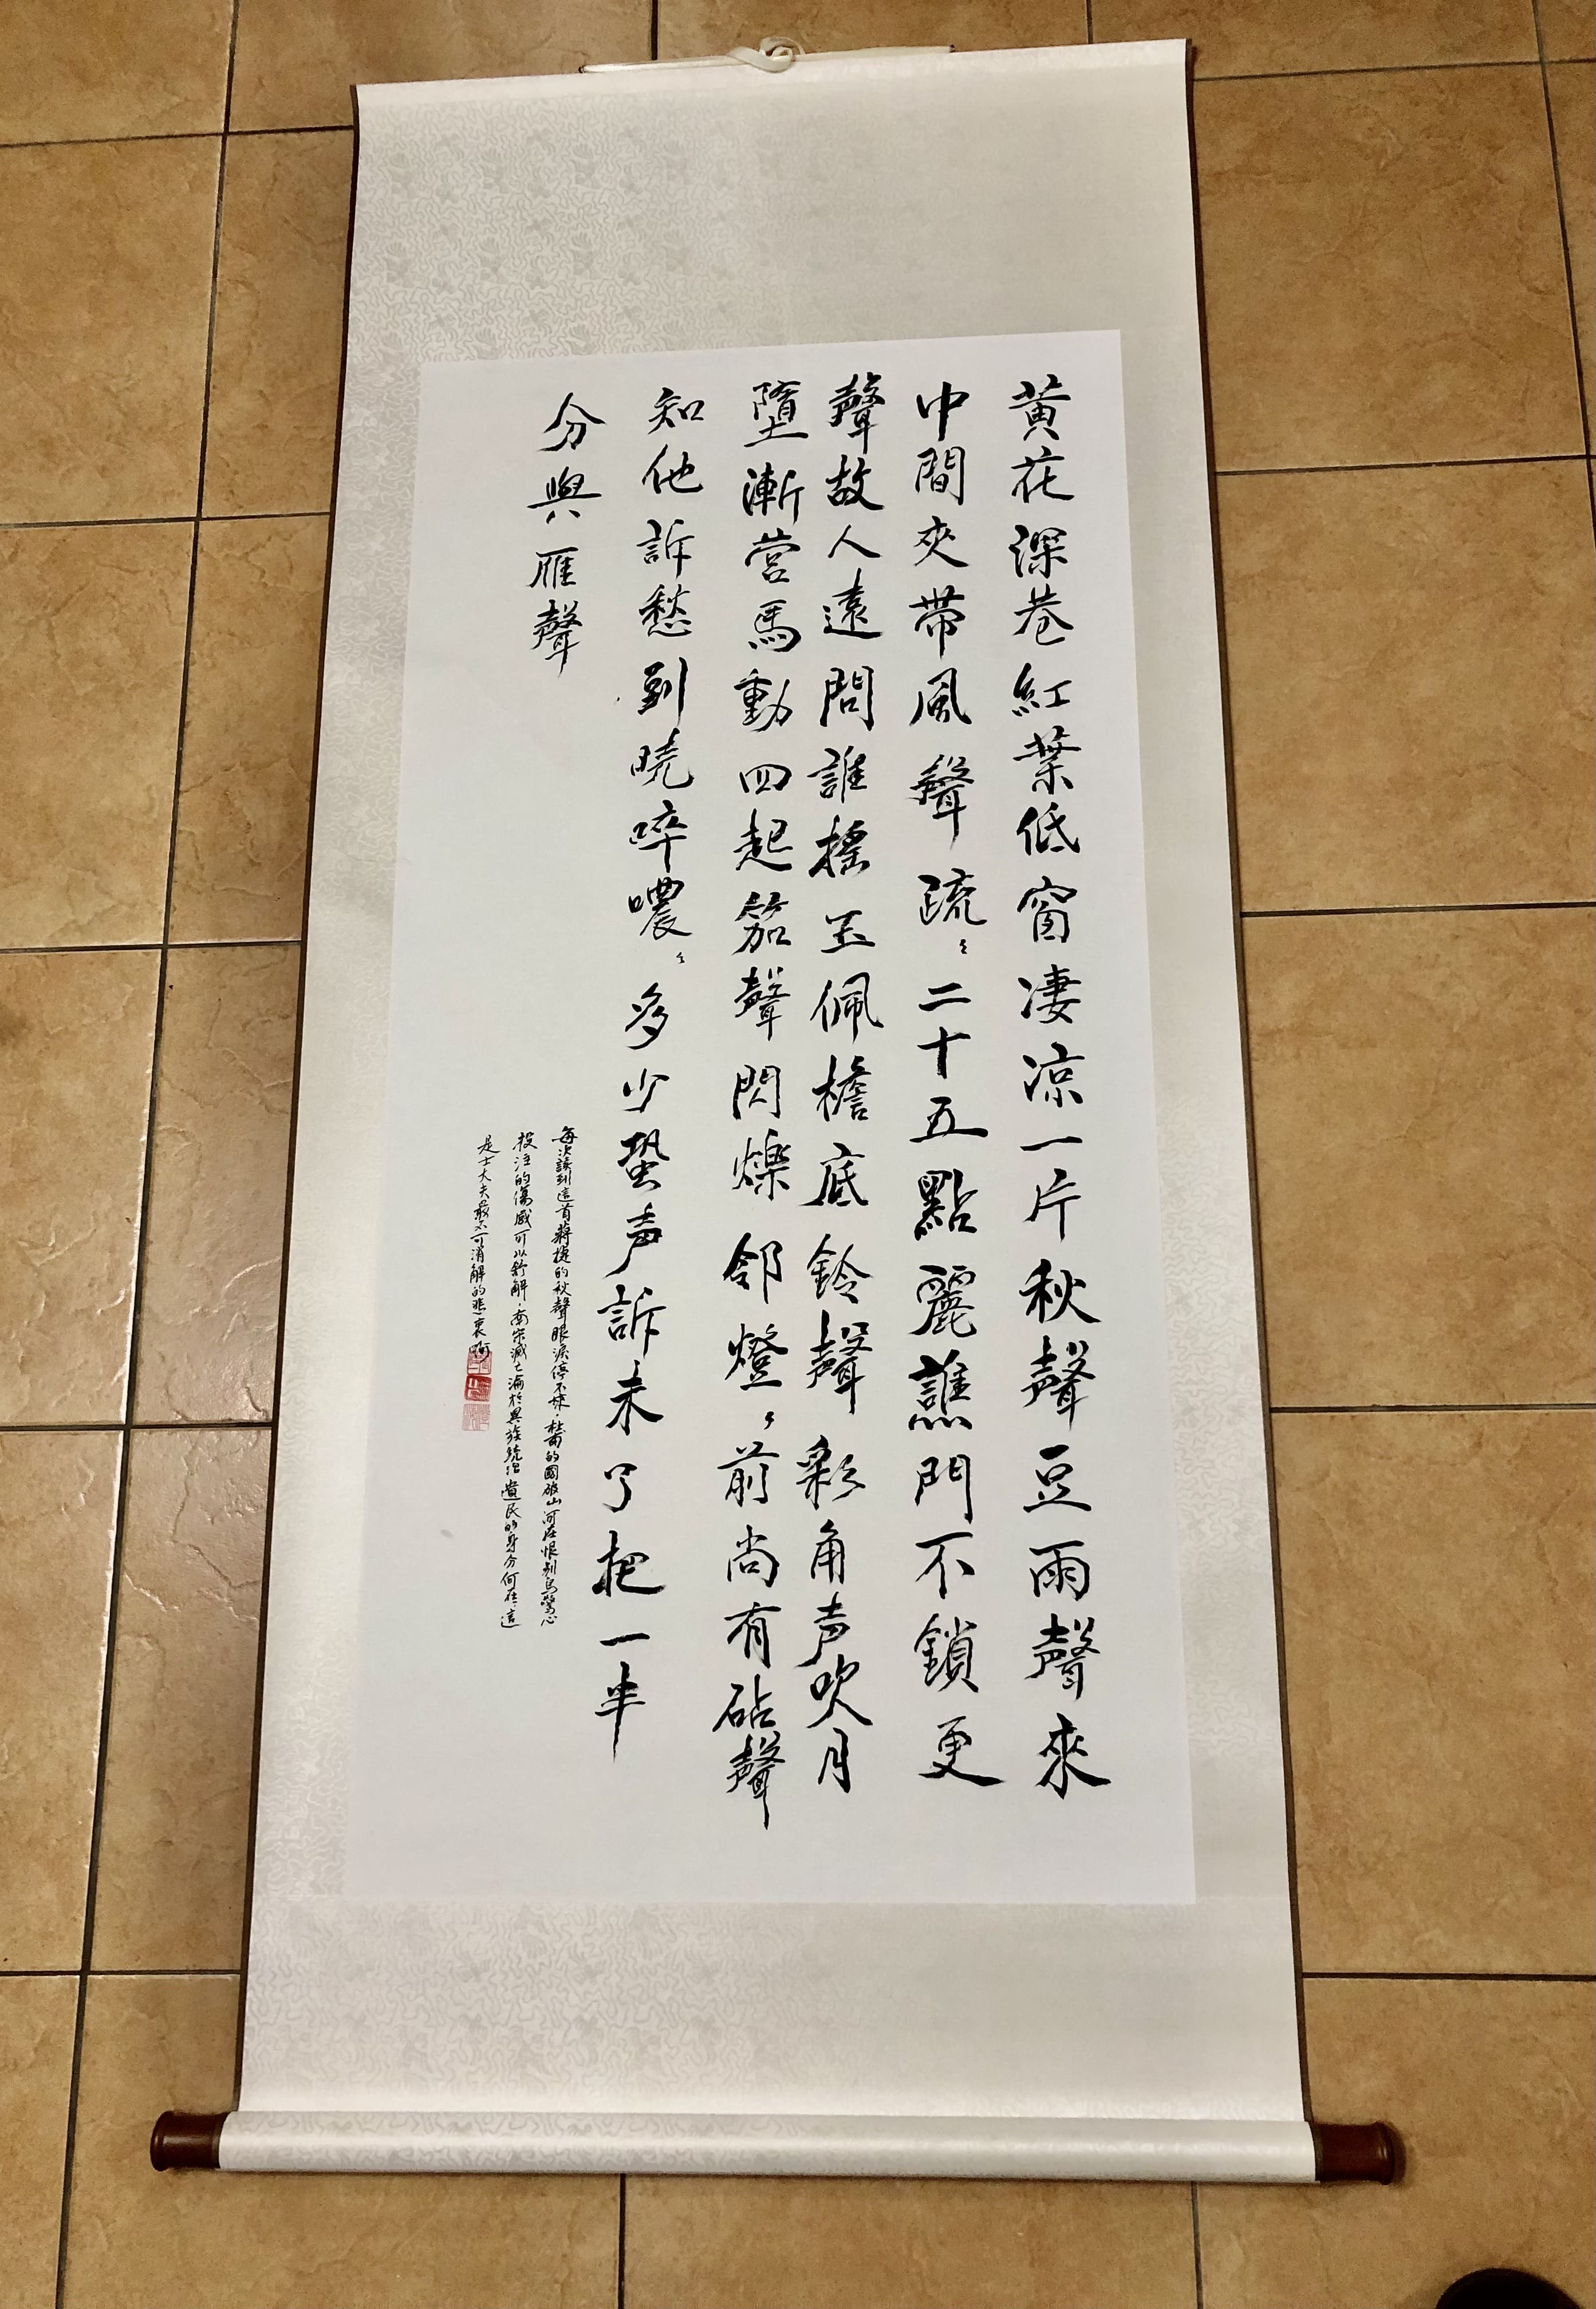 黄花深巷紅葉低窗淒凉一片秋聲豆雨聲來
中間夾帶風聲疏〻二十五點麗譙門不鎖更
聲故人遠問誰搖玉佩檐底鈴聲彩角声吹月
墮漸营馬動四起笳聲閃爍邻燈〻前尚有砧聲
知他訴愁到曉碎噥〻多少蛩声訴未了把一半
分與雁聲
每次讀到這首蔣捷的秋聲眼淚停不住杜甫的國破山河在恨别鳥驚心
投注的傷感可以舒解南宋滅亡淪於異族統治遺民的身分何在這
是士大夫最不可消解的悲哀